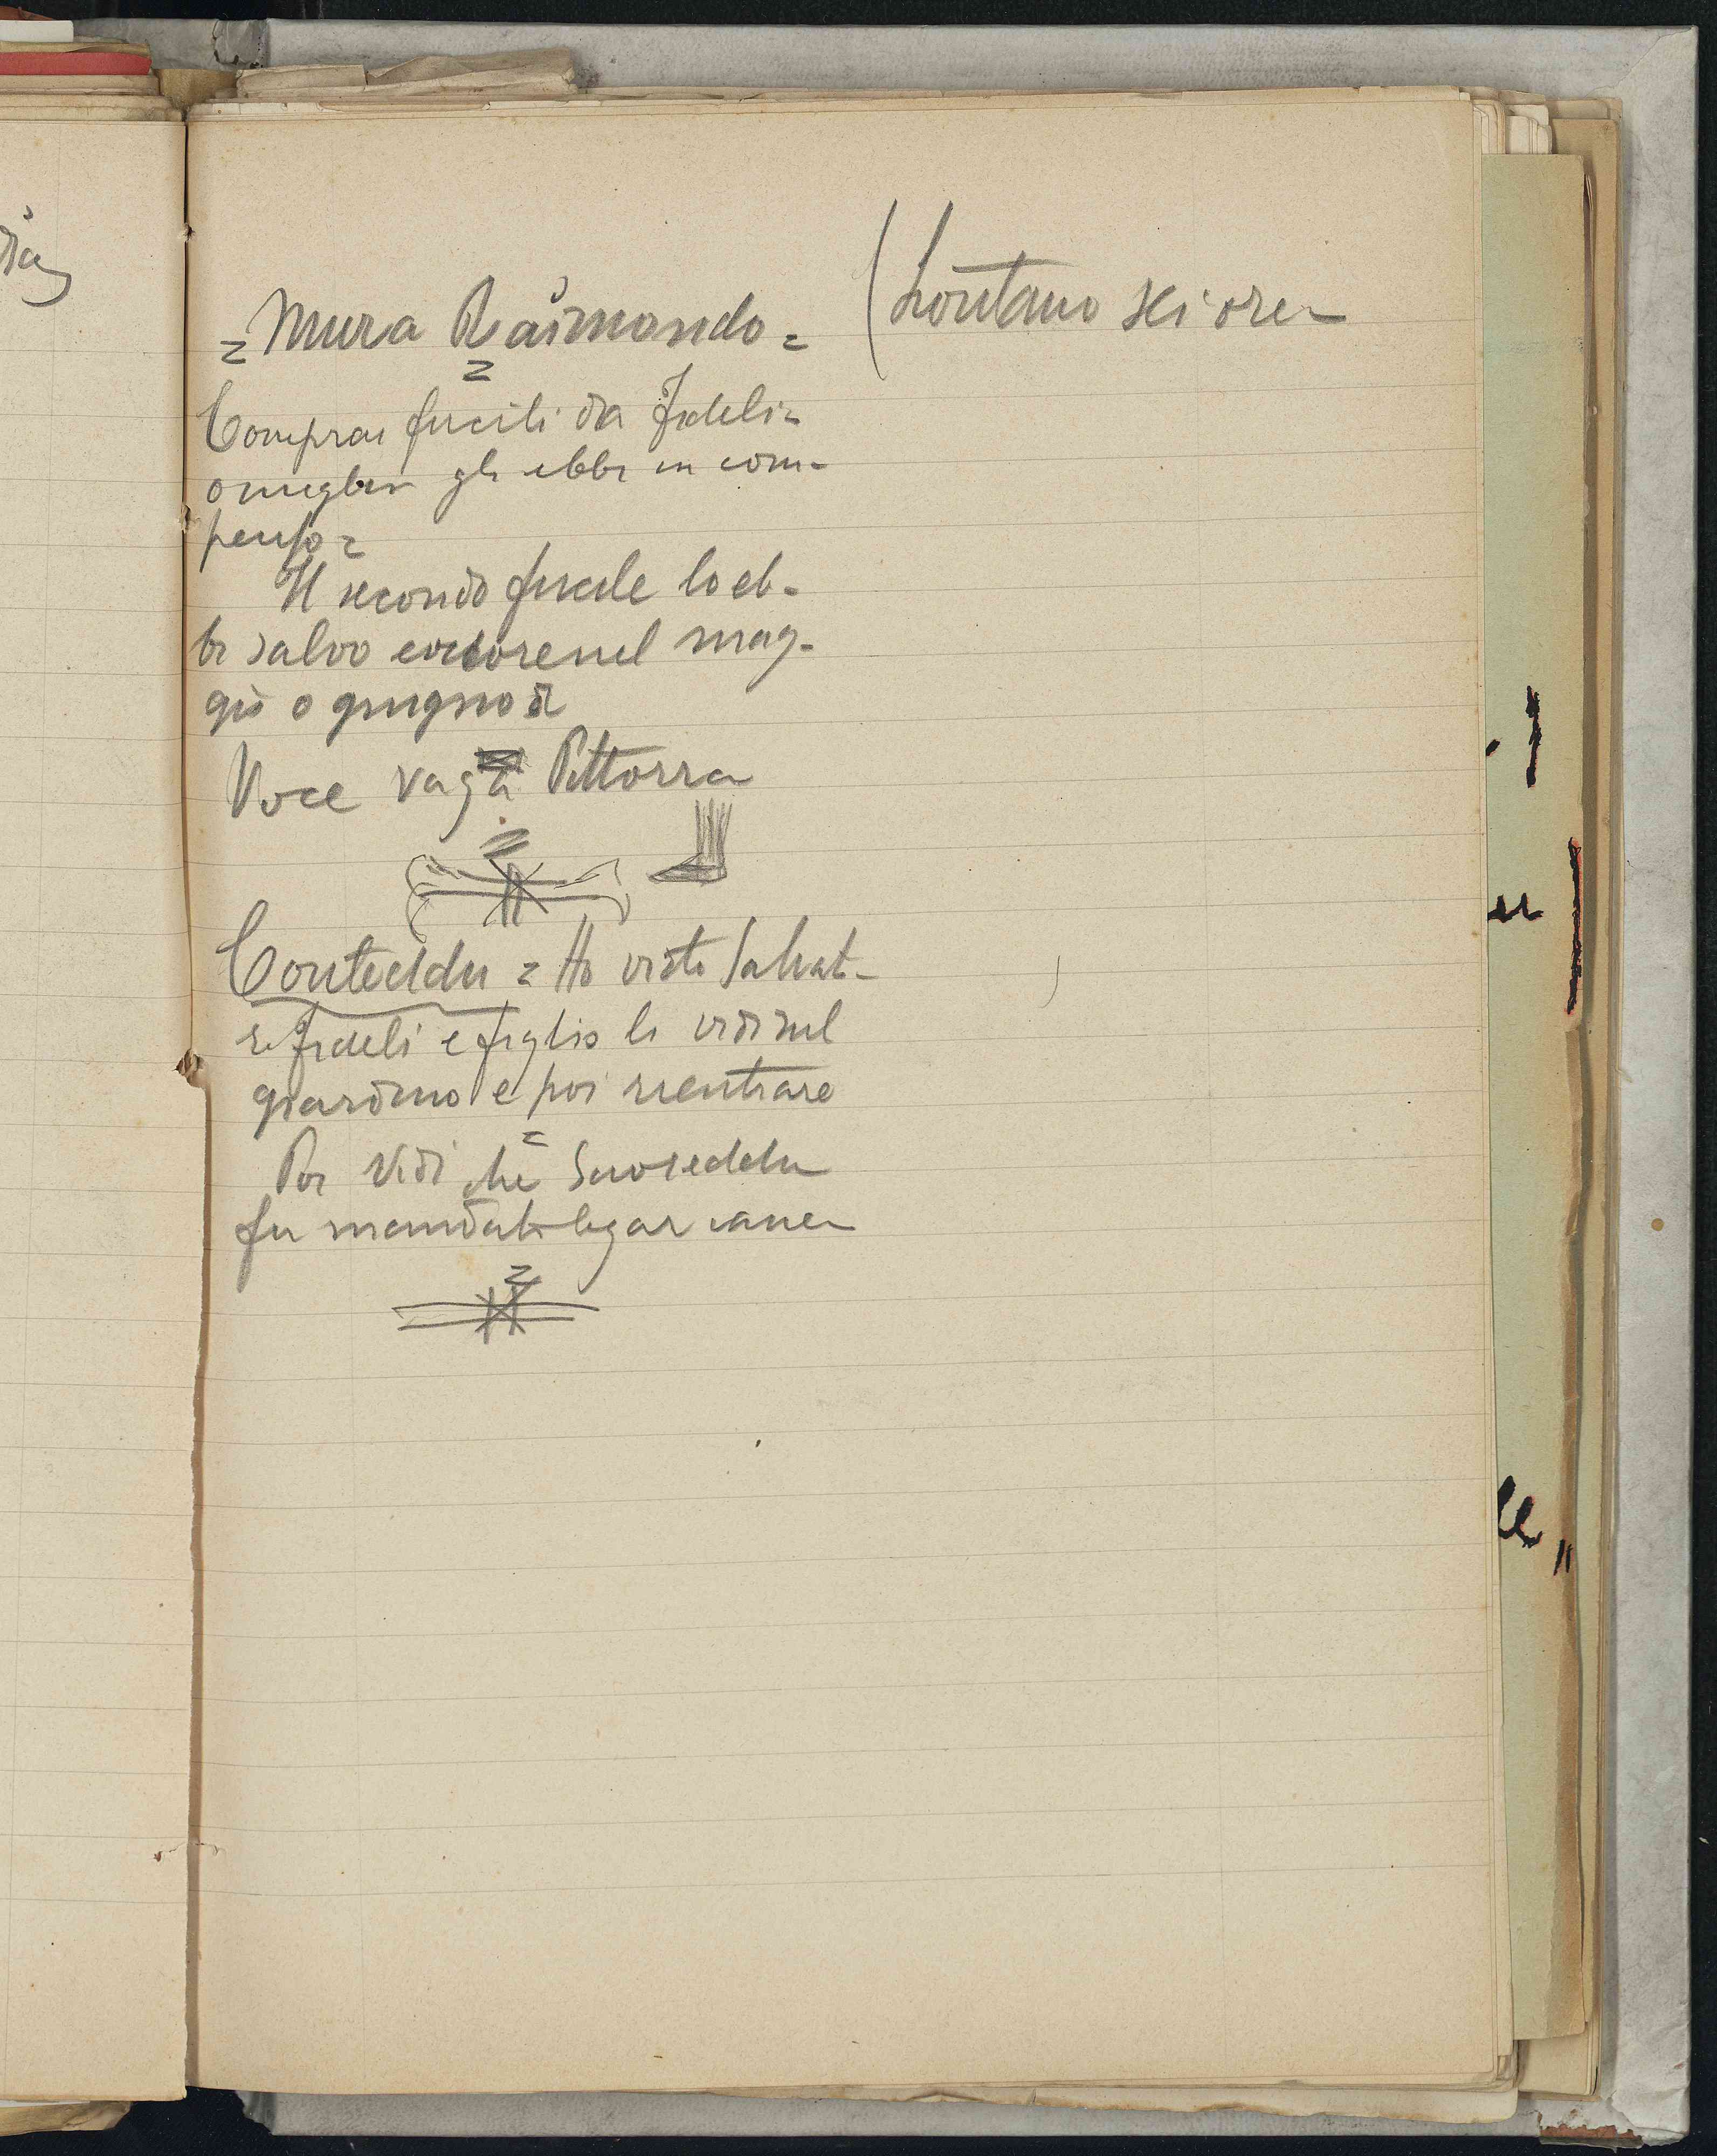 = Mura Raimondo =
(Lontano sei ore -
Comprai fucili da Fideli =
o meglio gli ebbi in com-
penso =
Il secondo fucile lo eb-
bi salvo errore nel mag-
gio o giugno di
Voce vaga Pittorra
Conteddu = Ho visto Salvat-
re Fideli e figlio li vidi nel
giardino e poi rientrare
Poi vidi che Suoreddu
fu mandato legar cane